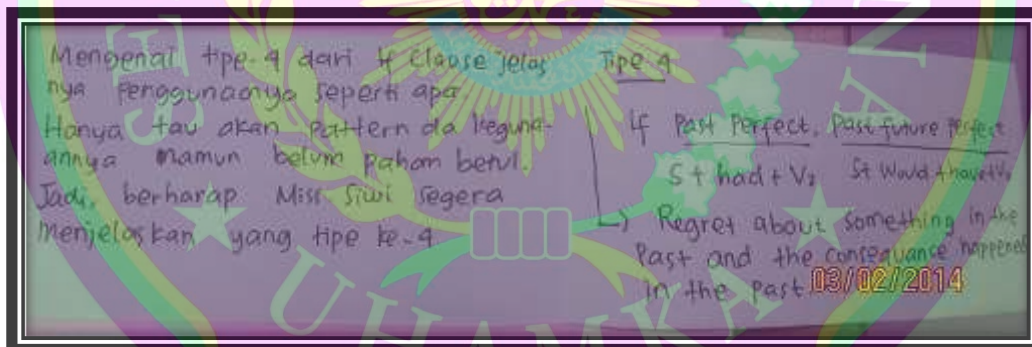 Mengenai tipe-4 dari If Clause jelas
nya Penggunaanya seperti apa.
Hanya tau akan Pattern da keguna-
annya namun belum paham betul.
Jadi, berharap Miss Siwi segera
Menjelaskan yang tipe ke-4
Tipe 4
If Past Perfect, Past future Perfect
S + had + V₃ S + Would + have + V₃
Regret about something in the
Past and the consequance happened
in the past
03/02/2014
UHAMKA